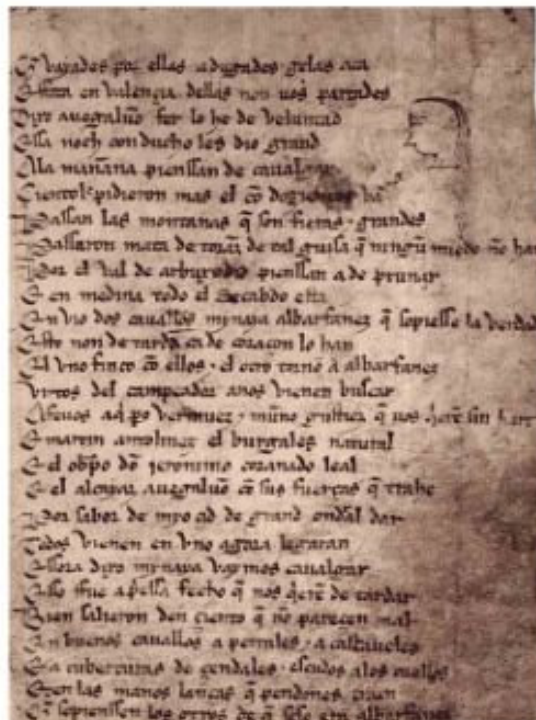 E vayades por ellas adugades gelas aca
Ffata en valençia dellas non vos partades
Dixo avegaluo fer lo he de veluntad
Essa noch conducho les dio grand
A la mañana pienssan de caualgar
Çientol pidieron mas el cõ dozientos va
Passan las montanas q̃ son fieras grandes
Passaron mata de torãz de tal guisa q̃ ningũ miedo nõ han
Por el val de arbuxedo pienssan a deprunar
E en medina todo el Recabdo esta
Envio dos cavallos mynaya albarfanez q̃ sopiesse la verdad
Esto non detardã ca de coraçon lo han
El vno finco cõ ellos el otro torno a albarfanez
virtos del campeador anos vienen buscar
Afeuos aq̃ po vermuez muño gustioz q̃ uos q̃erẽ sin hart
E martin antolinez el burgales natural
E el obpo dõ jeronimo coranado leal
E el alcayaz auegaluõ cõ sus fuerças q̃ trahe
Por sabor de myo çid de grand ondral dar
Todos vienen en vno agora legaran
Essora dixo mynaya vaymos caualgar
Esso ffue apssa fecho q̃ nos q̃erẽ detardar
Bien salieron den çiento q̃ nõ pareçen mal
En buenos cauallos a petrales a cascaueles
E a cuberturas de çendales escudos alos cuellos
E en las manos lanças q̃ pendones traen
Q̃ sopienssen los otros de q̃ seso era albarfanez